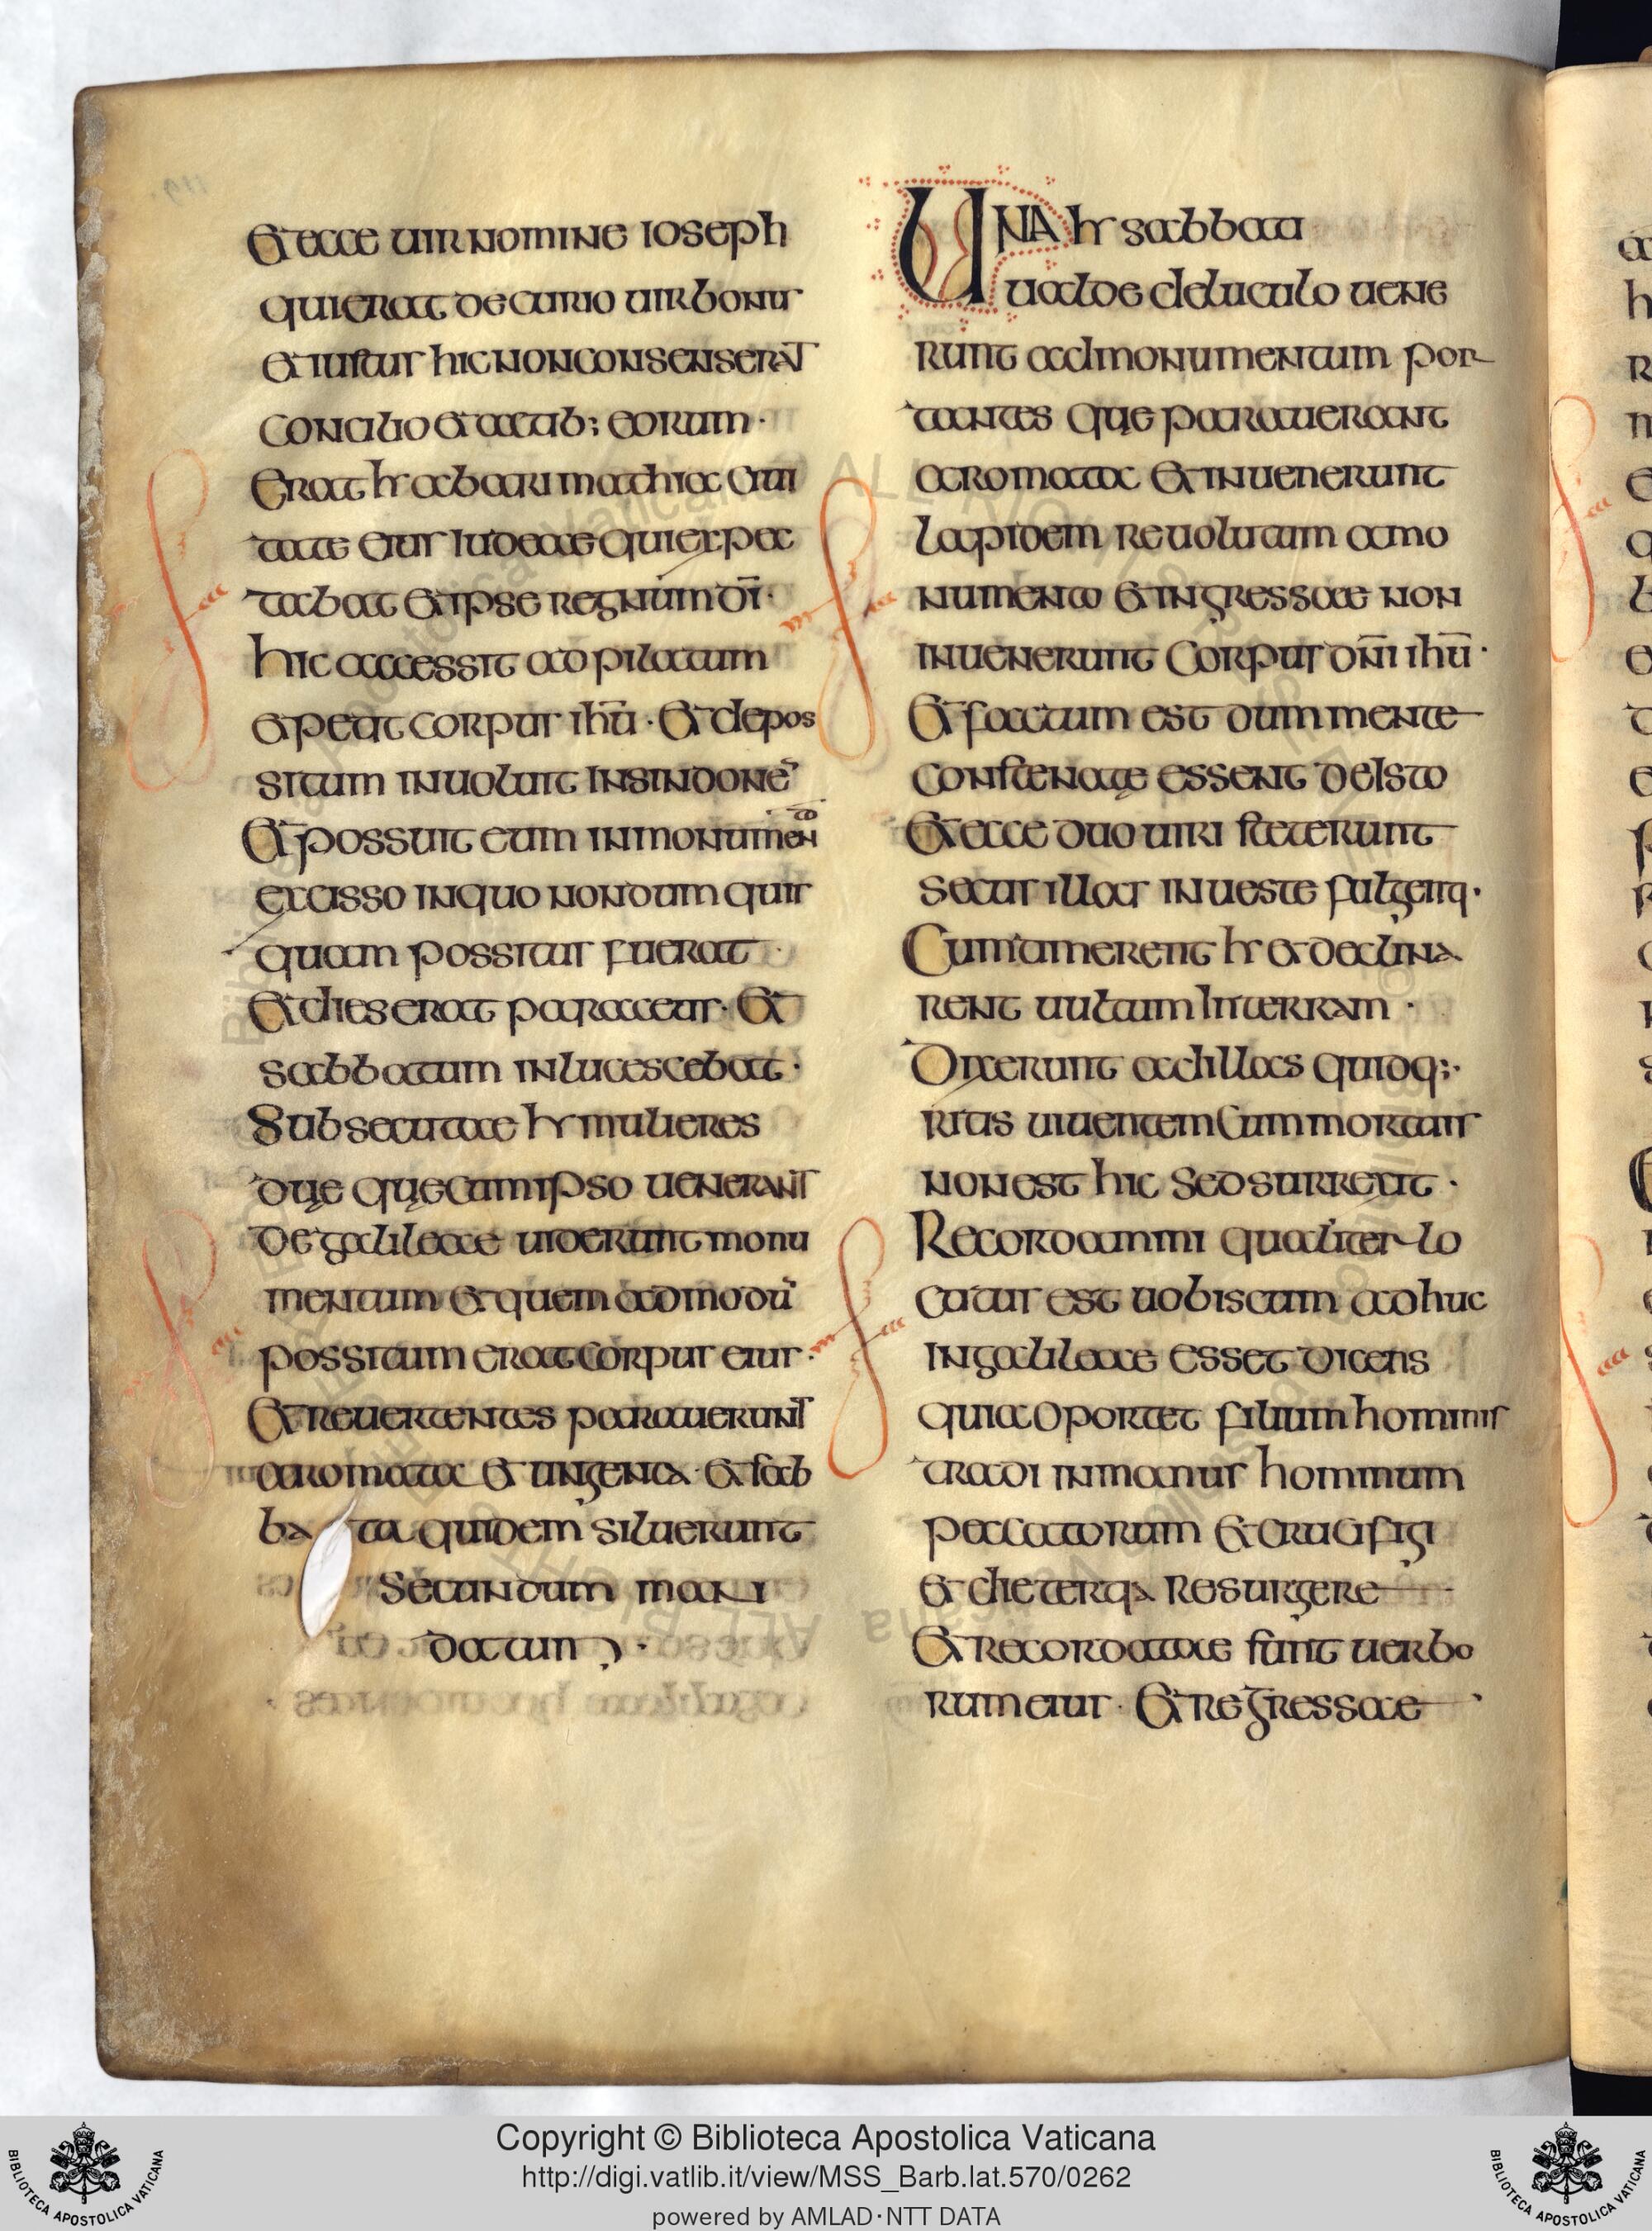 Et ecce uir nomine ioseph
qui erat decurio uir bonus
et iustus hic non consenserat
concilio et actib; eorum ·
Erat hr ab arimathia ciui
tate eius iudeae qui expec
tabat et ipse regnum dī ·
hic accessit ad pilatum
et petiit corpus ihū · Et depos
situm inuoluit insindone
Et possuit eum in monumen
to
excisso in quo nondum quis
quam possitus fuerat ·
Et dies erat paraceus · Et
sabbatum inlucescebat ·
Subsecutae hr mulieres
duę quę cum ipso uenerant
de galileae uiderunt monu
mentum et quem ad modū
possitum erat corpus eius ·
Et reuertentes parauerunt
aromata et ungenta · et sab
bata quidem siluerunt
secundum man
datum ·
Una hr sabbati
ualde deluculo uene
runt ad monumentum por
tantes quę parauerant
aromata et inuenerunt
lapidem reuolutum a mo
numento et ingressae non
inuenerunt corpus dn̄i ihū ·
Et factum est dum mente
constenatę essent de isto
Et ecce duo uiri steterunt
secus illas in ueste fulgenti ·
Cum timerent hr et declina
rent uultum in terram ·
Dixerunt ad illas quid q;
ritis uiuentem cum mortuis
non est hic sed surrexit ·
Recordamini qualiter lo
cutus est uobiscum adhuc
in galileae esset dicens
quia oportet filium hominis
tradi in manus hominum
peccatorum et crucifigi
et die tertia resurgere
Et recordatae sunt uerbo
rum eius · Et regressae
Copyright © Biblioteca Apostolica Vaticana
http://digi.vatlib.it/view/MSS_Barb.lat.570/0262
powered by AMLAD·NTT DATA
BIBLIOTECA APOSTOLICA VATICANA
BIBLIOTECA APOSTOLICA VATICANA